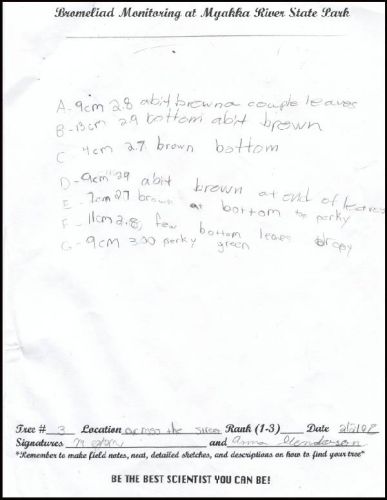 Bromeliad Monitoring at Myakka River State Park
A-9cm 2.8 abit browna couple leaves
B-13cm 2.9 bottom abit brown
C 4cm 2.7 brown bottom
D-9cm 2.9 abit brown at end of leaves
E-7cm 2.7 brown at bottom perky
F-11cm 2.8, few bottom leaves dropy
G-9cm 3.00 perky green
Tree # 3 Location across the street Rank (1-3) Date
Signatures and Anna Henderson
*Remember to make field notes, neat, detailed sketches, and descriptions on how to find your tree*
BE THE BEST SCIENTIST YOU CAN BE!